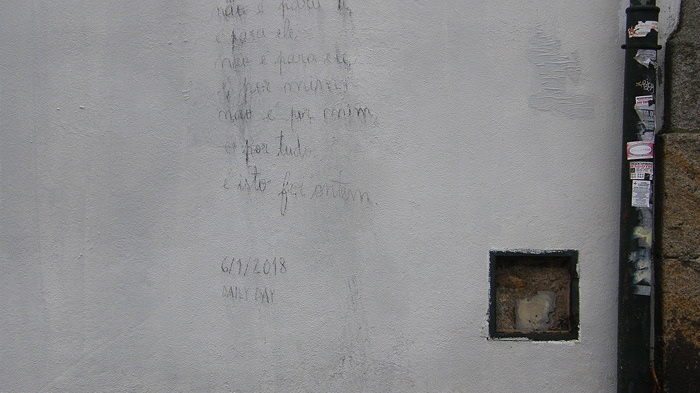 não é para
é para ele
não é para ele
é por
não é por mim
é por tudo
e isto foi ontem
6/1/2018
DAILY DAY